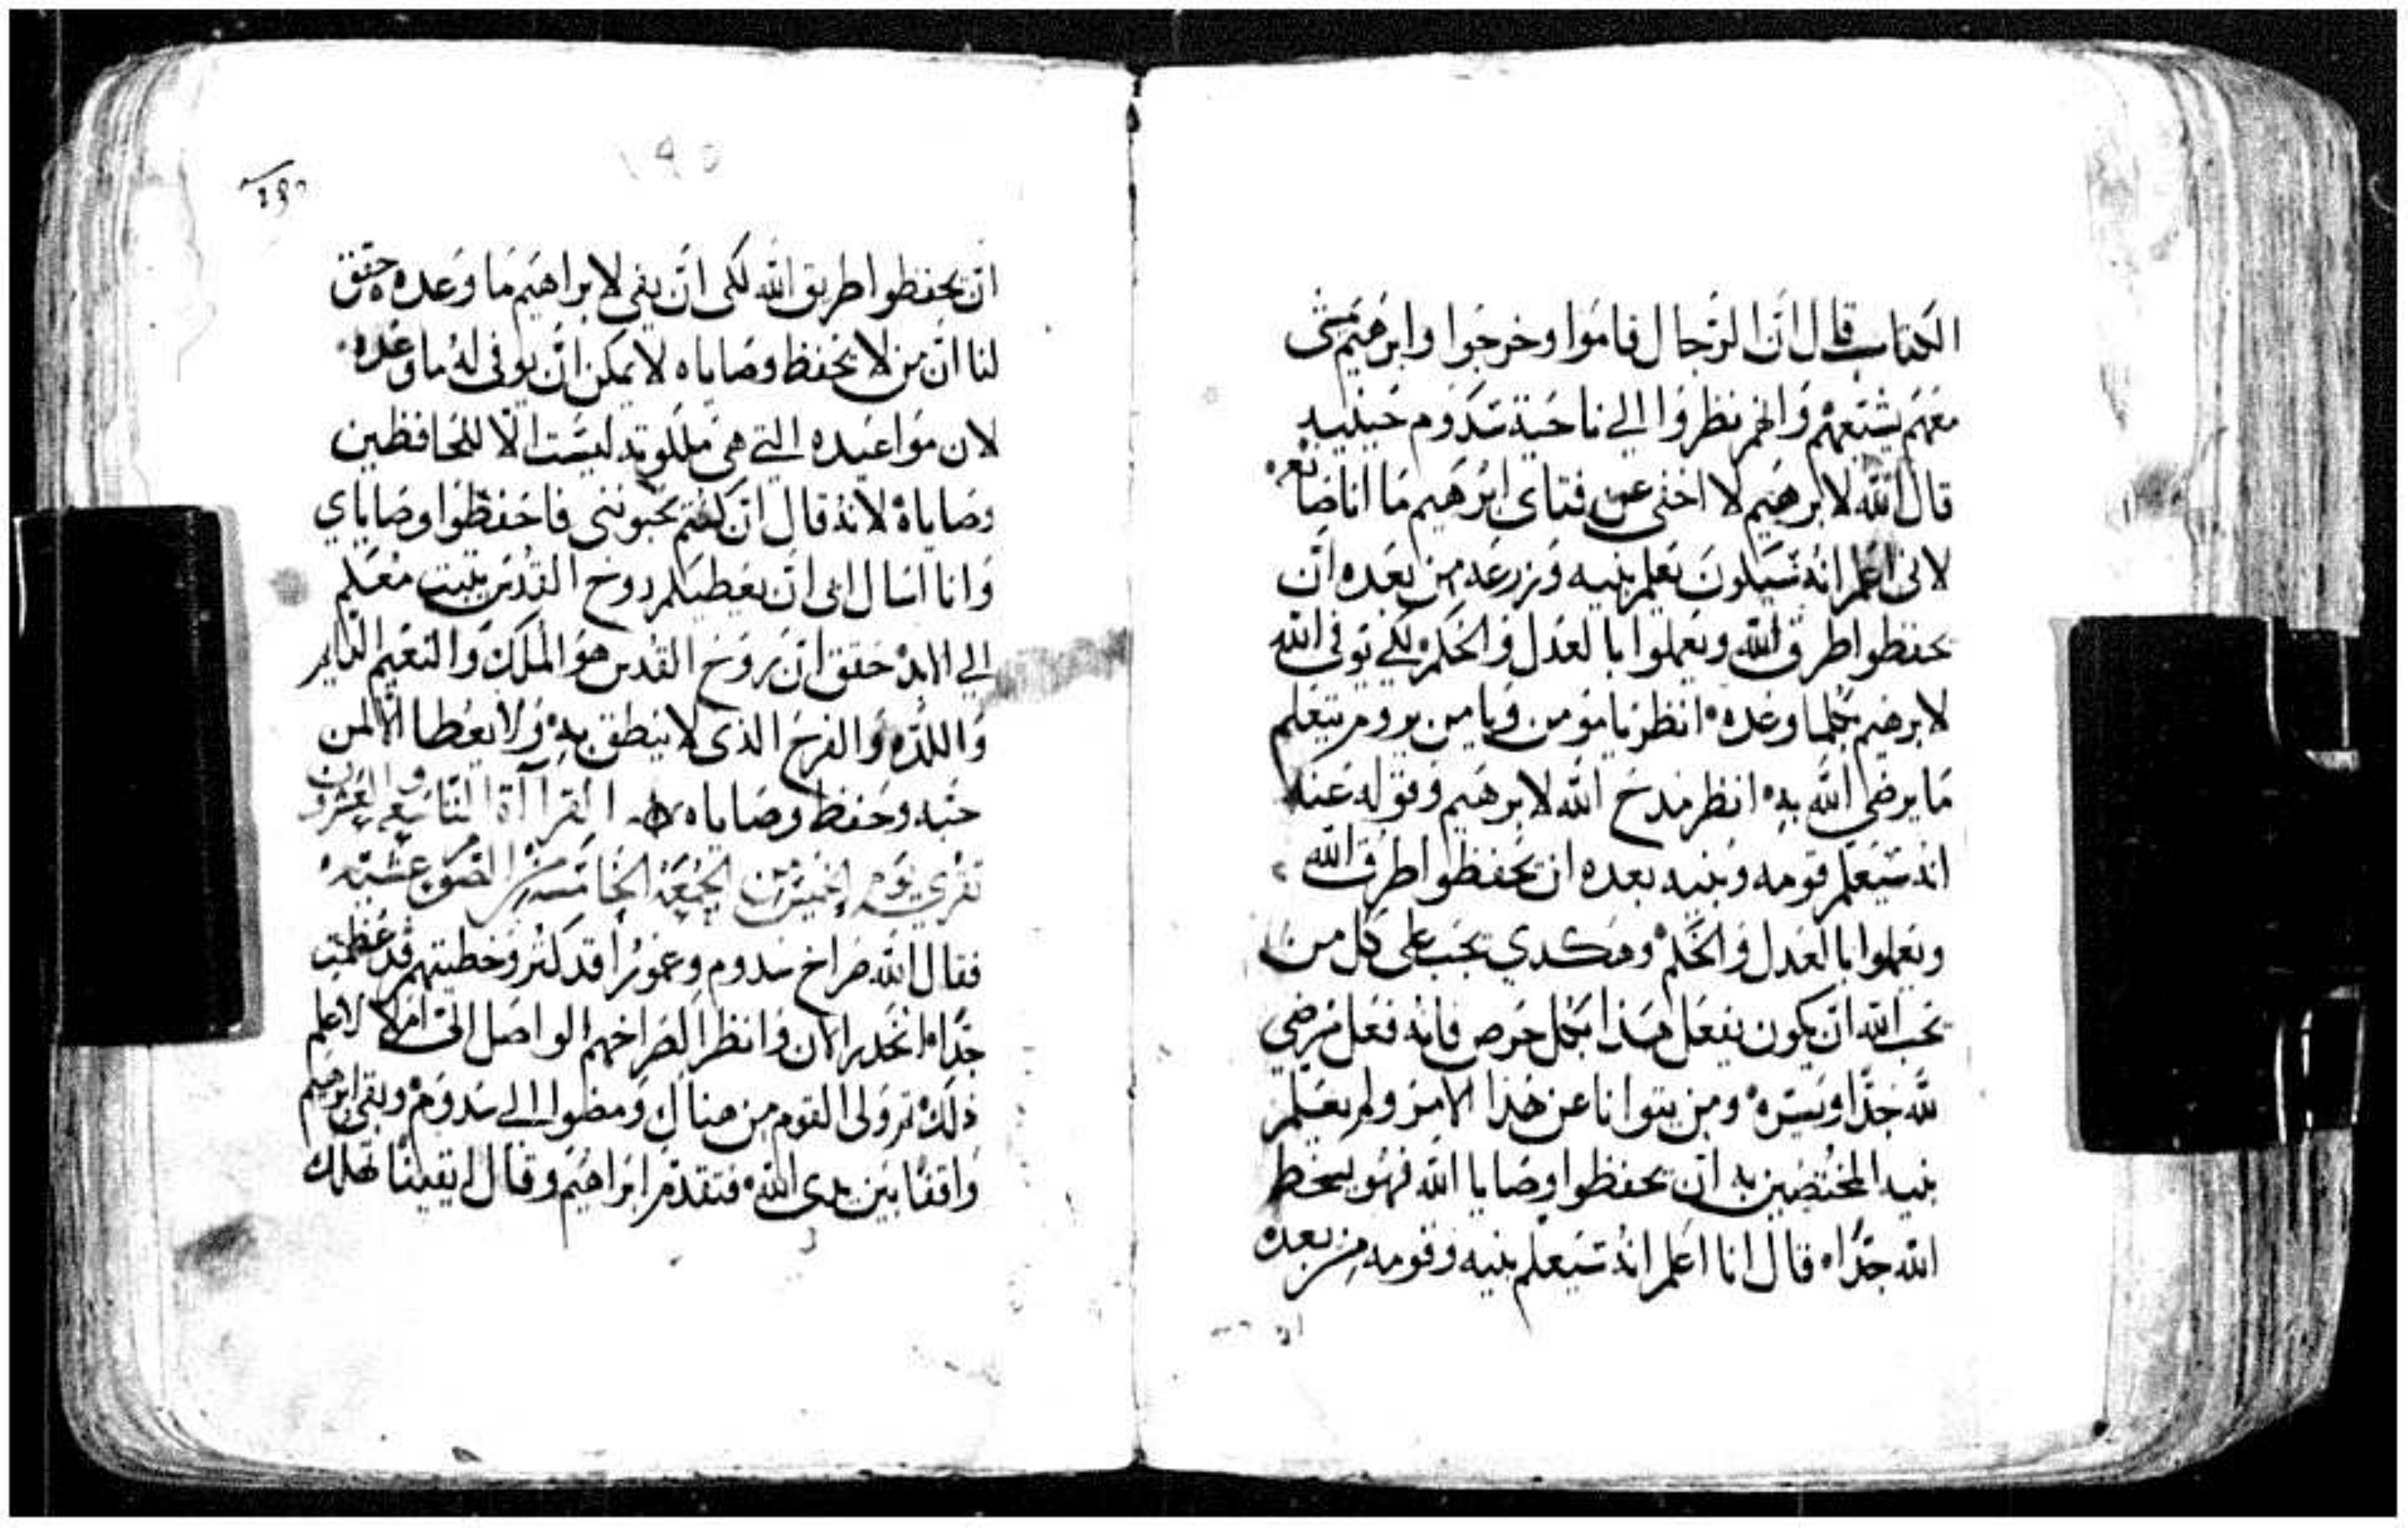 الكتاب قال ان الرجال قاموا وخرجوا وابرهيم مشى
معهم يشيعهم وانهم نظروا الي ناحية سدوم حينيد
قال الله لابرهيم لا اخفى عن فتاى ابرهيم ما انا صانعه
لانى اعلم انه سيكون يعلم بنيه وزرعه من بعده ان
يحفظوا طرق الله ويعملوا بالعدل والحكم لكي يوفى الله
لابرهيم كلما وعده انظر يا مومن ويا من يروم يتعلم
ما يرضي الله به انظر مدح الله لابرهيم وقوله عنه
انه سيعلم قومه وبنيه بعده ان يحفظوا طرق الله
ويعملوا بالعدل والحكم وهكدي يجب على كل من
يحب الله ان يكون يفعل هذا بكل حرص فانه فعل مرضي
لله جدا ويسره ومن يتوانا عن هذا الامر ولم يعلم
بنيه المختصين به ان يحفظوا وصايا الله فهو يسخط
الله جدا قال انا اعلم انه سيعلم بنيه وقومه من بعده
١٩٥
ان يحفظوا طريق الله لكى ان يفى لابراهيم ما وعده حقق
لنا ان من لا يحفظ وصاياه لا يمكن ان يوفى له ما وعده
لان مواعيده التي هى ملكوته ليست الا للحافظين
وصاياه لانه قال ان كنتم تحبوننى فاحفظوا وصاياي
وانا اسال ابى ان يعطيكم روح القدس يثبت معكم
الي الابد حقق ان روح القدس هو الملك والنعيم الدايم
واللده والفرح الذى لا ينطق به ولا يعطا الا لمن
حبه وحفظ وصاياه القراآة التاسعه والعشرون
تقري يوم الخميس من الجمعة الخامسه من الصوم عشية
فقال الله صراخ سدوم وعمورا قد كثر وخطيتهم قد عظمت
جدا انحدر الان وانظر الصراخهم الواصل الى ام لا لاعلم
ذلك ثم ولى القوم من هناك ومضوا الي سدوم وبقى ابرهيم
واقفا بين يدى الله فتقدم ابراهيم وقال ايقينا تهلك